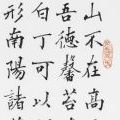 山不在高
吾德馨苔
白丁可以
形南陽諸